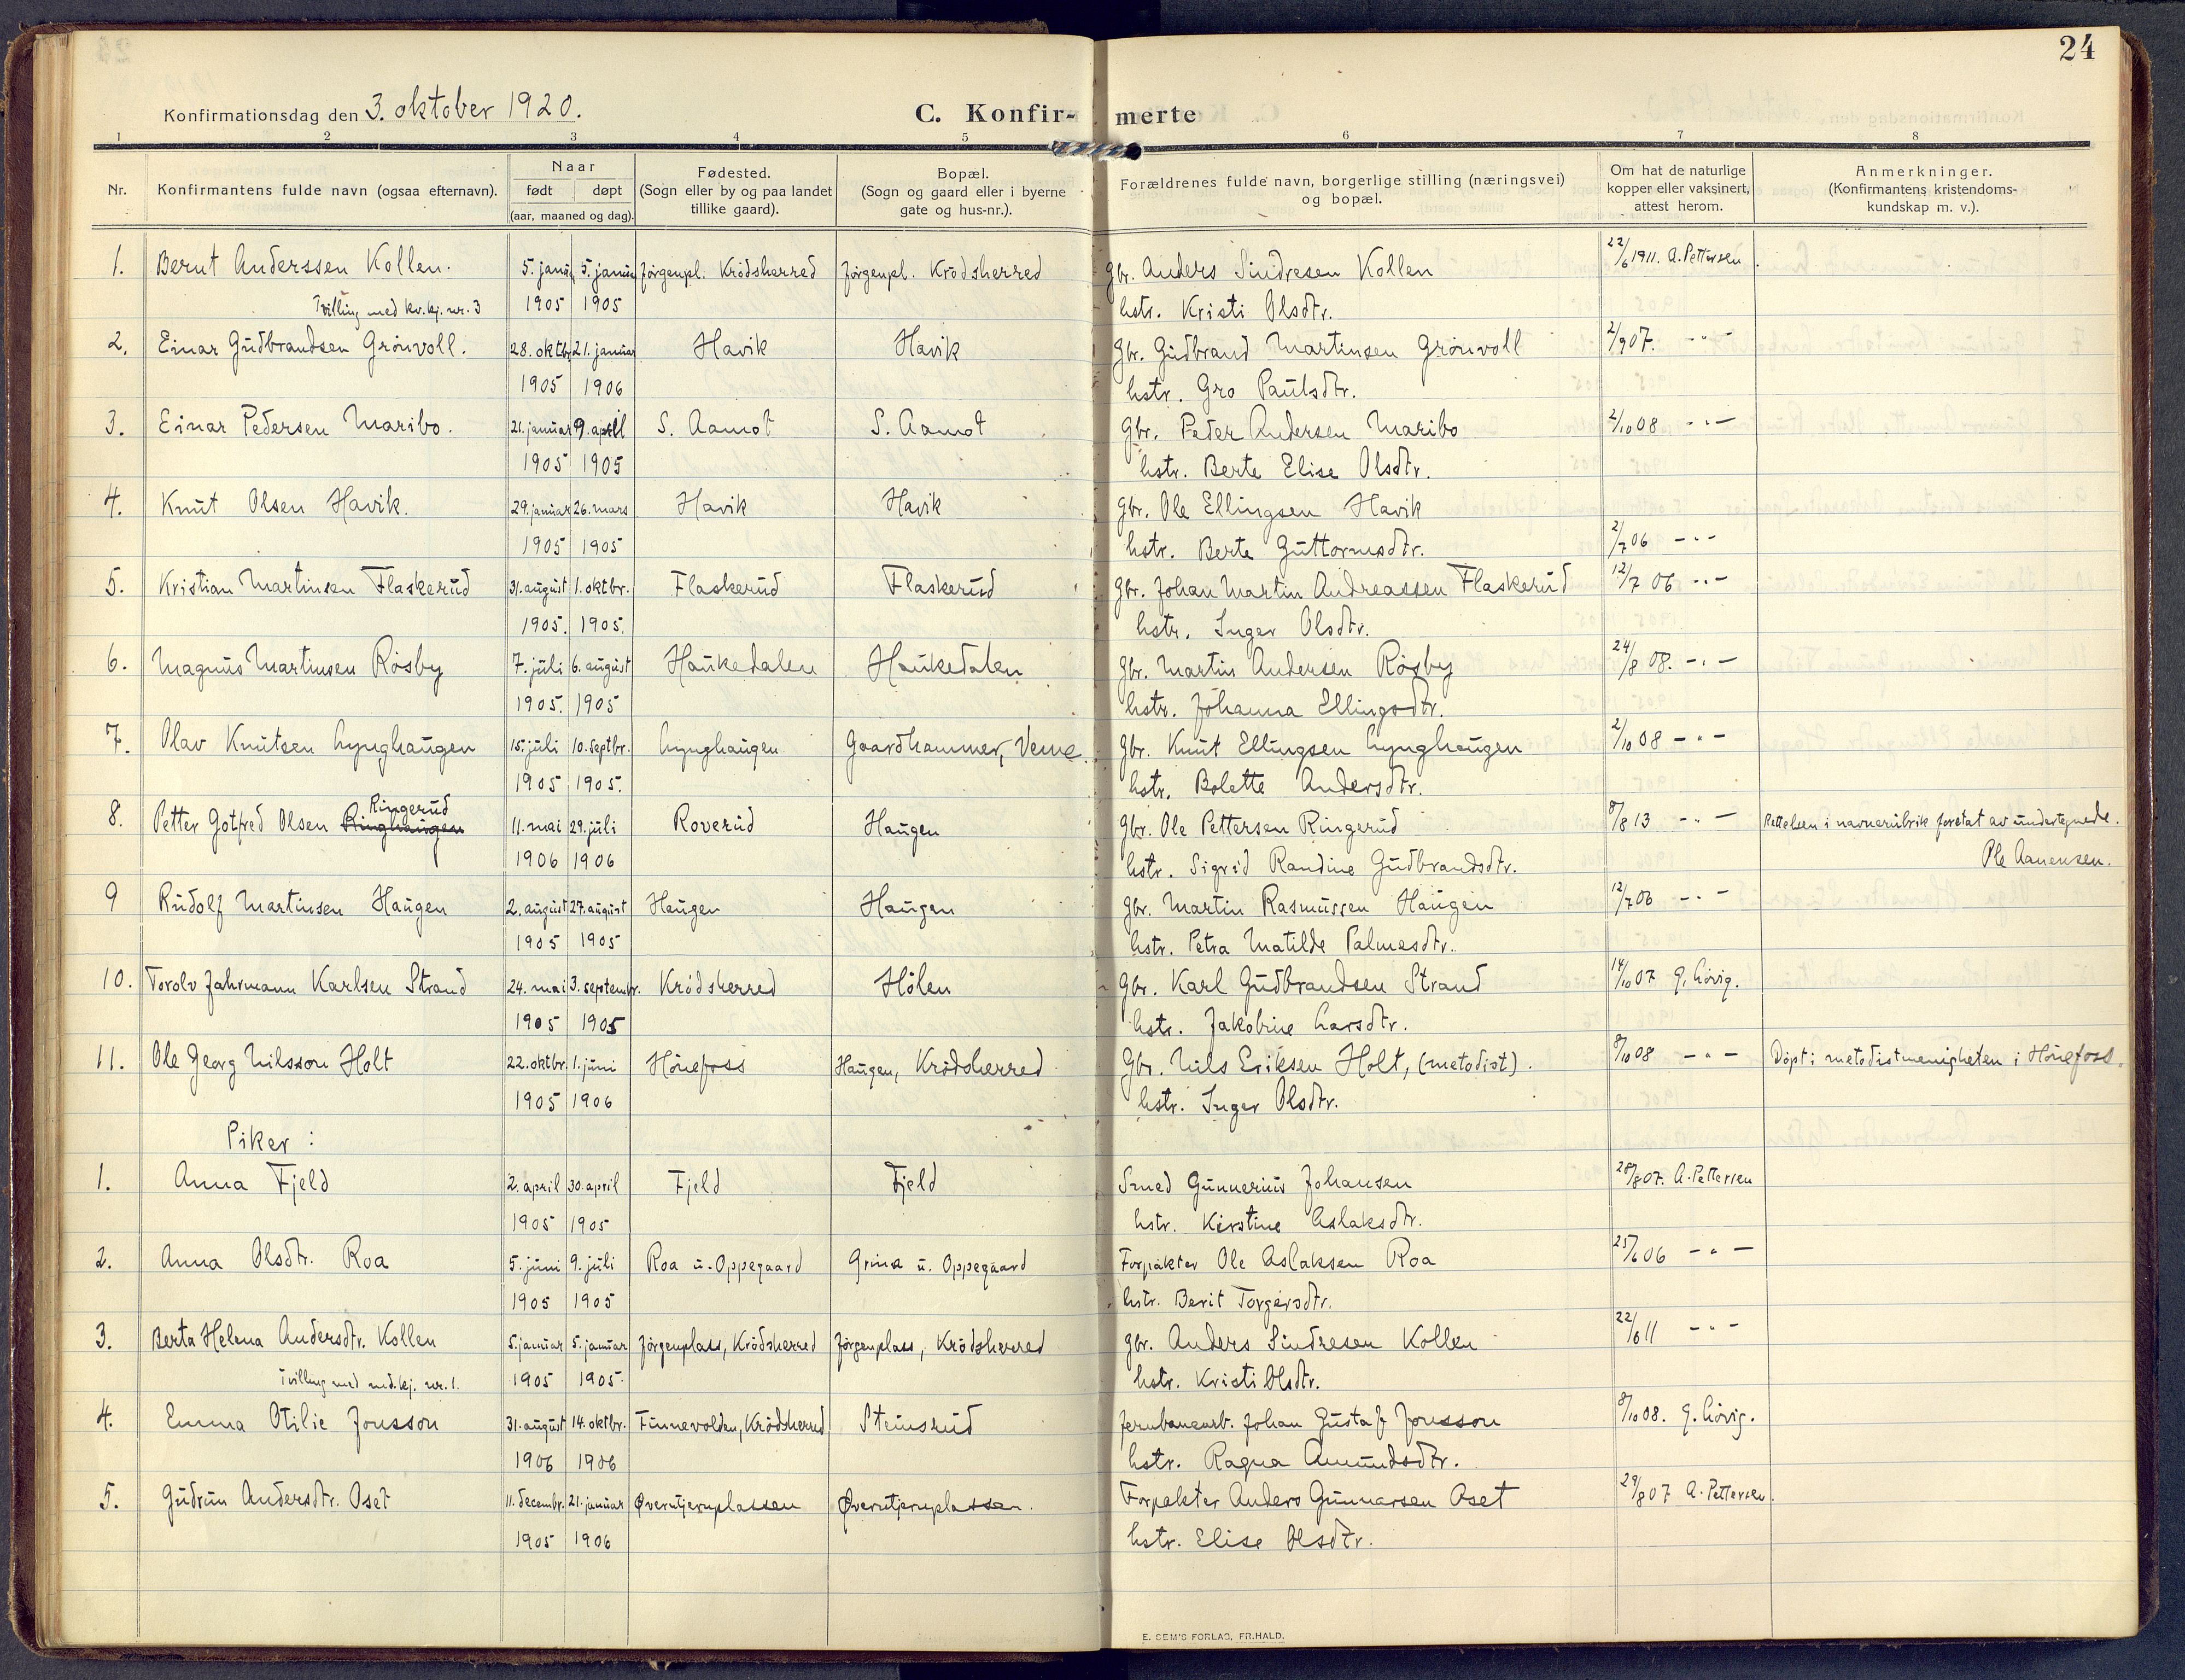 24
Konfirmationsdag den 3. oktober 1920.
C. Konfir- merte
1 2 3 4 5 6 7 8
Nr. Konfirmantens fulde navn (ogsaa efternavn). Naar født døpt (aar, maaned og dag). Fødested. (Sogn eller by og paa landet tillike gaard). Bopæl. (Sogn og gaard eller i byerne gate og hus-nr.). Forældrenes fulde navn, borgerlige stilling (næringsvei) og bopæl. Om hat de naturlige kopper eller vaksinert, attest herom. Anmerkninger. (Konfirmantens kristendoms- kundskap m. v.).
1. Bernt Anderssen Kollen. 5. januar 5. januar Jørgenpl. Krödsherred Jørgenpl. Krödsherred Gbr. Anders Sindresen Kollen 22/6 1911. A. Pettersen
Tvilling med kv.kj. nr. 3 1905 1905 hstr. Kristi Olsdtr.
2. Einar Gudbrandsen Grönvoll. 28. oktbr. 21. januar Havik Havik Gbr. Gudbrand Martinsen Grönvoll 2/9 07. -"-
1905 1906 hstr. Gro Paulsdtr.
3. Einar Pedersen Maribo. 21. januar 9. april S. Aamot S. Aamot Gbr. Peder Andersen Maribo 2/10 08 -"-
1905 1905 hstr. Berte Elise Olsdtr.
4. Knut Olsen Havik. 29. januar 26. mars Havik Havik Gbr. Ole Ellingsen Havik
1905 1905 hstr. Berte Guttormsdtr. 2/7 06 -"-
5. Kristian Martinsen Flaskerud 31. august 1. oktbr. Flaskerud Flaskerud Gbr. Johan Martin Andreassen Flaskerud 12/7 06 -"-
1905. 1905. hstr. Inger Olsdtr.
6. Magnus Martinsen Rösby 7. juli 6. august Haukedalen Haukedalen Gbr. Martin Andersen Rösby 24/8 08. -"-
1905. 1905 hstr. Johanna Ellingsdtr.
7. Olav Knutsen Lynghaugen 15. juli 10. septbr. Lynghaugen Gaardhammer, Veme. Gbr. Knut Ellingsen Lynghaugen 2/10 08 -"-
1905 1905. hstr. Bolette Andersdtr.
Ringerud
8. Petter Gotfred Olsen Ringhaugen 11. mai 29. juli Roverud Haugen Gbr. Ole Pettersen Ringerud 8/8 13 -"- Rettelsen i navnerubrik foretat av undertegnede.
1906 1906 hstr. Sigrid Randine Gudbrandsdtr. Ole Aanensen.
9 Rudolf Martinsen Haugen 2. august 27. august Haugen Haugen Gbr. Martin Rasmussen Haugen 12/7 06 -"-
1905 1905 hstr. Petra Matilde Palmesdtr.
10. Torolv Jahrmann Karlsen Strand 24. mai 3. septembr. Krödsherred Hölen Gbr. Karl Gudbrandsen Strand 14/10 07 G. Lövig.
1905 1905 hstr. Jakobine Larsdtr.
11. Ole Georg Nilsson Holt 22. oktbr. 1. juni Hönefoss Haugen, Krödsherred Gbr. Nils Eriksen Holt, (metodist). 8/10 08 -"- Döpt i metodistmenigheten i Hönefoss.
1905 1906 hstr. Inger Olsdtr.
Piker:
1. Anna Fjeld 2. april 30. april Fjeld Fjeld Smed Gunnerius Johansen 28/8 07. A. Pettersen
1905 1905 hstr. Kirstine Aslaksdtr.
2. Anna Olsdtr. Roa 5. juni 9. juli Roa u. Oppegaard Grina u. Oppegaard Forpakter Ole Aslaksen Roa 25/6 06 -"-
1905 1905 hstr. Berit Torgersdtr.
3. Berta Helena Andersdtr. Kollen 5. januar 5. januar Jørgenplass, Krödsherred Jørgenplass, Krödsherred Gbr. Anders Sindresen Kollen 22/6 11 -"-
Tvilling med md.kj. nr. 1. 1905 1905. hstr. Kristi Olsdtr.
4. Emma Otilie Jonsson 31. august 14. oktbr. Finnevolden, Krödsherred Steinsrud Jernbanearb. Johan Gustaf Jonsson 8/10 08. G. Lövig.
1906 1906 hstr. Ragna Amundsdtr.
5. Gudrun Andersdtr. Oset 11. decembr. 21. januar Øverntjernplassen Øverntjernplassen. Forpakter Anders Gunnarsen Oset 29/8 07 A. Pettersen.
1905 1906 hstr. Elise Olsdtr.
E. SEM'S FORLAG, FR.HALD.